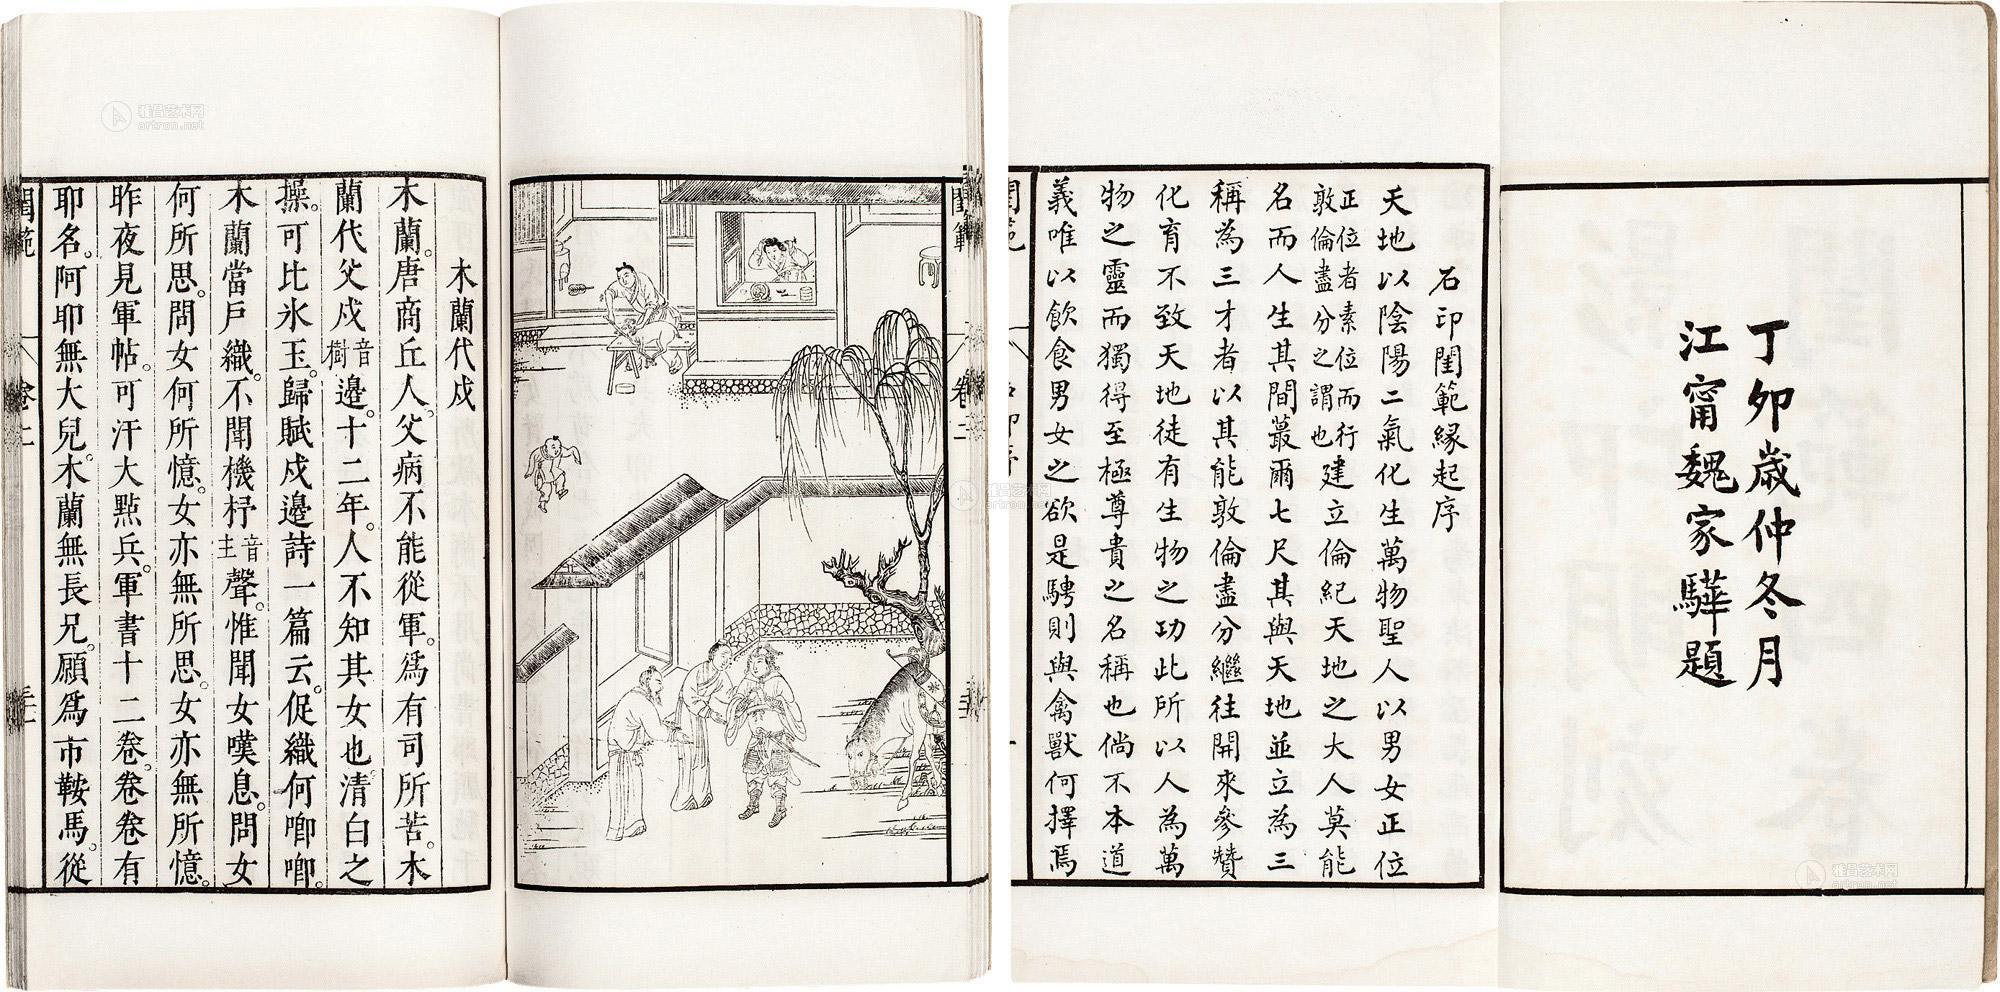 丁卯歲仲冬月
江甯魏家驊題
石印閨範緣起序
天地以陰陽二氣化生萬物聖人以男女正位
正位者素位而行
敦倫盡分之謂也
建立倫紀天地之大人莫能
名而人生其間蕞爾七尺其與天地並立為三
稱為三才者以其能敦倫盡分繼往開來參贊
化育不致天地徒有生物之功此所以人為萬
物之靈而獨得至極尊貴之名稱也倘不本道
義唯以飲食男女之欲是騁則與禽獸何擇焉
閨範
卷二
木蘭代戍
木蘭。唐商丘人。父病不能從軍。爲有司所苦。木
蘭代父戍
音樹
邊。十二年。人不知其女也。清白之
操。可比氷玉。歸賦戍邊詩一篇云。促織何唧唧。
木蘭當戶織。不聞機杼
音主
聲。惟聞女嘆息。問女
何所思。問女何所憶。女亦無所思。女亦無所憶。
昨夜見軍帖。可汗大點兵。軍書十二卷。卷卷有
耶名。阿耶無大兒。木蘭無長兄。願爲市鞍馬。從
卷二
雅昌艺术网
artron.net
雅昌艺术网
artron.net
雅昌艺术网
artron.net